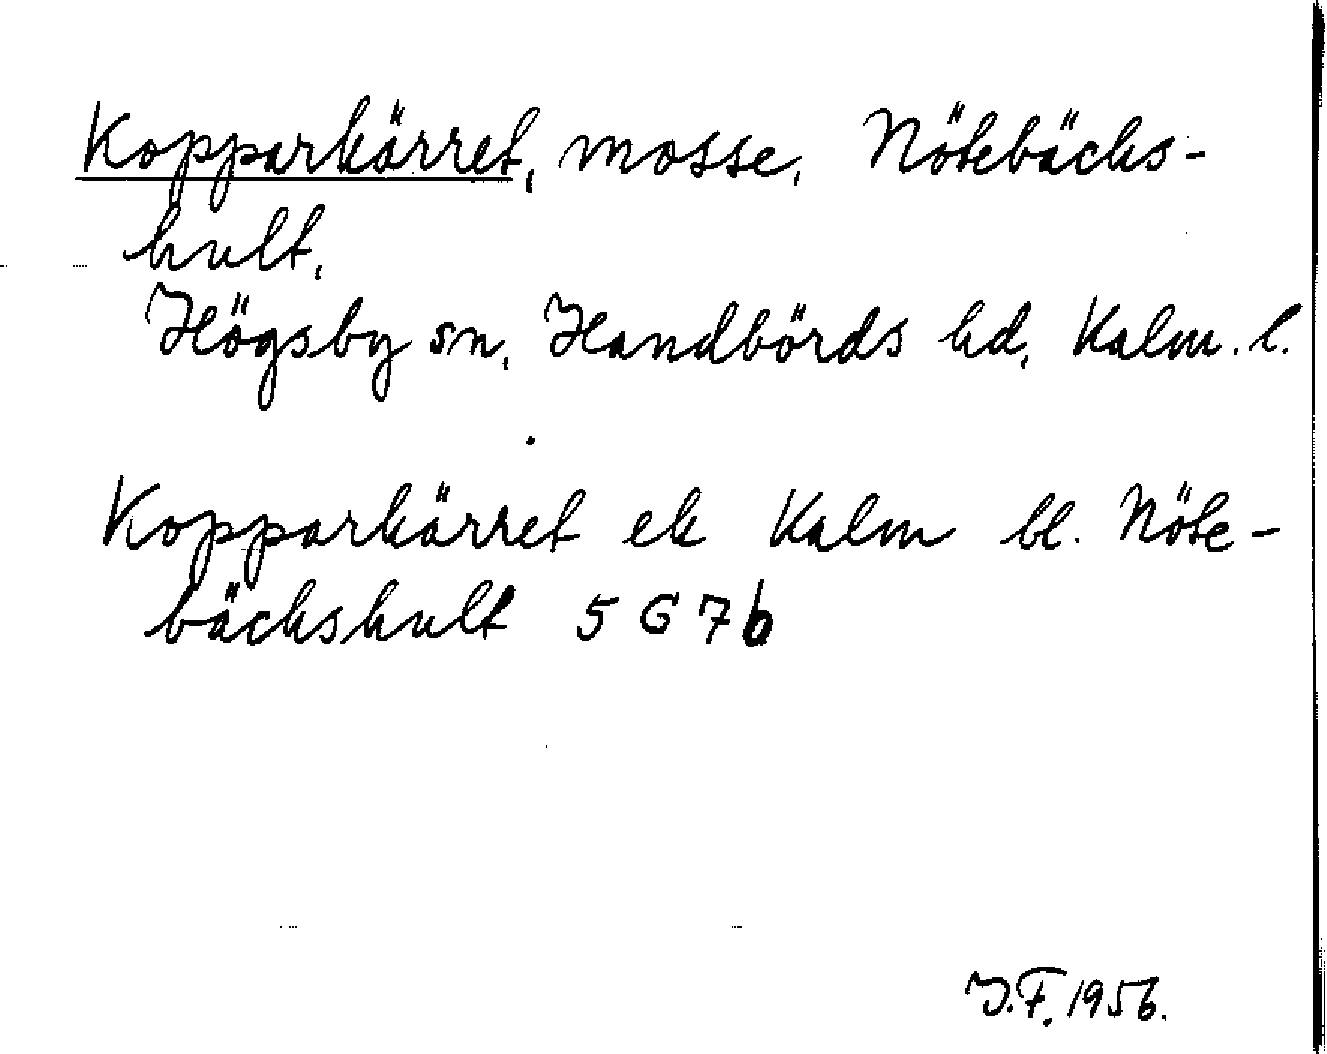 Kopparkärret, mosse, Nötebäcks-
hult,
Högsby sn, Handbörds hd, Kalm. l.
Kopparkärret ek Kalm bl. Nöte-
bäckshult 5 G 7 b
J.F. 1956.